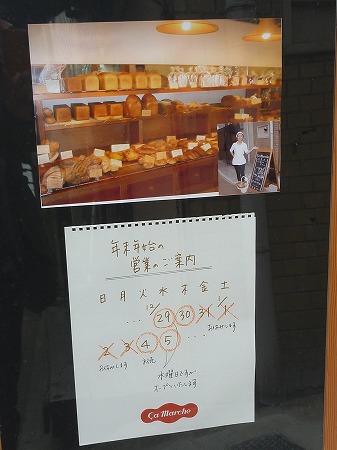 年末年始の
営業のご案内
日月火水木金土
12/
… 29 30 31 1/1
おやすみします
2 3 4 5 …
おやすみします
水曜日ですが
オープンいたします
Ça marche